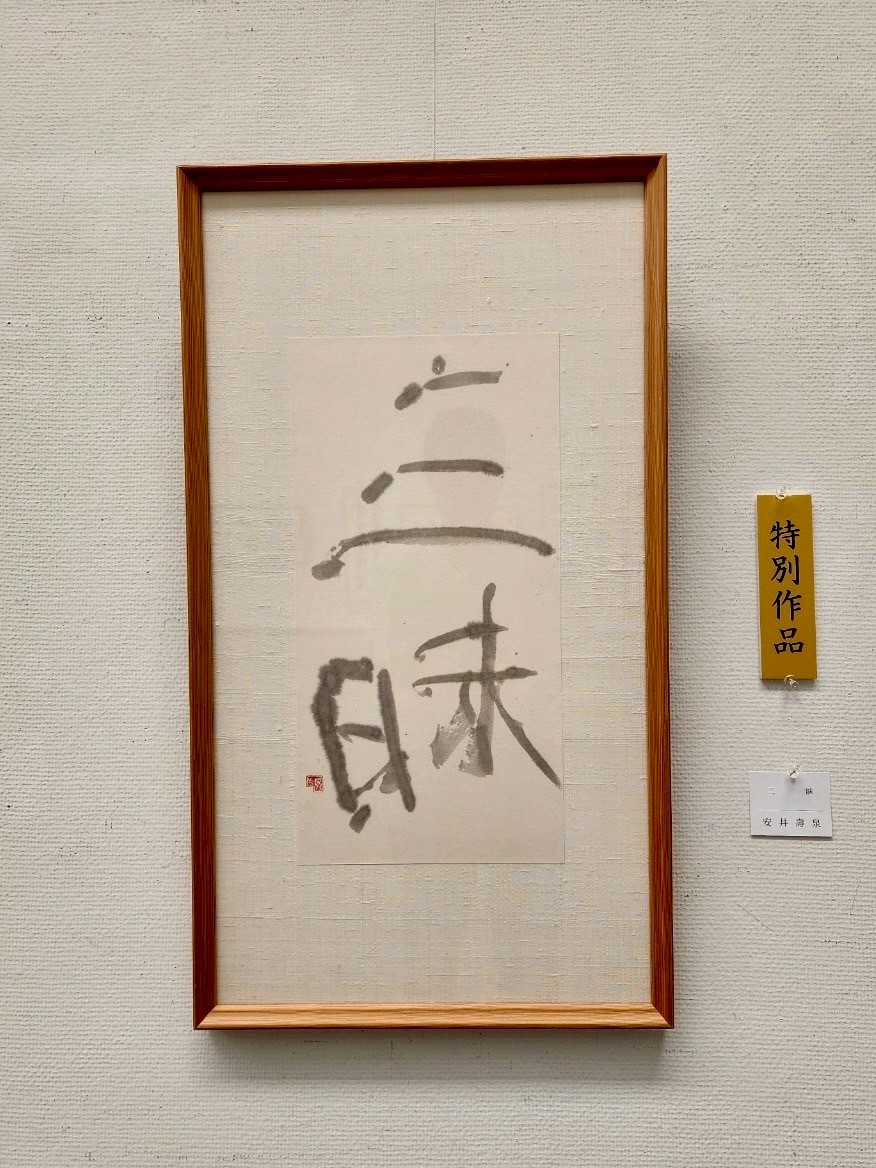 三
昧
特別作品
三 昧
安井壽泉